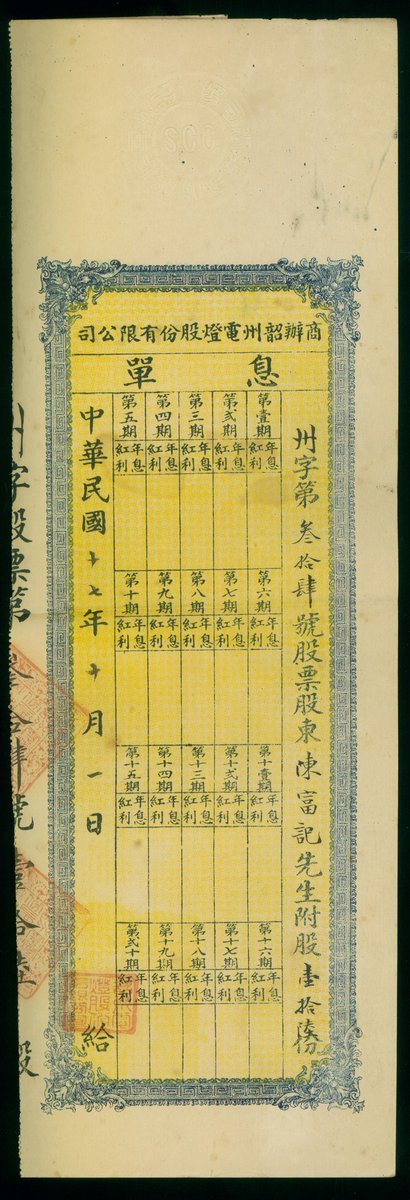 商辦韶州電燈股份有限公司
息單
州字第叁拾肆號股票股東陳富記先生附股壹拾陸份
第壹期 第弍期 第三期 第四期 第五期
年息紅利 年息紅利 年息紅利 年息紅利 年息紅利
第六期 第七期 第八期 第九期 第十期
年息紅利 年息紅利 年息紅利 年息紅利 年息紅利
第十壹期 第十弍期 第十三期 第十四期 第十五期
年息紅利 年息紅利 年息紅利 年息紅利 年息紅利
第十六期 第十七期 第十八期 第十九期 第弍十期
年息紅利 年息紅利 年息紅利 年息紅利 年息紅利
中華民國十七年十月一日給
州字股票第叁拾肆號壹拾陸股